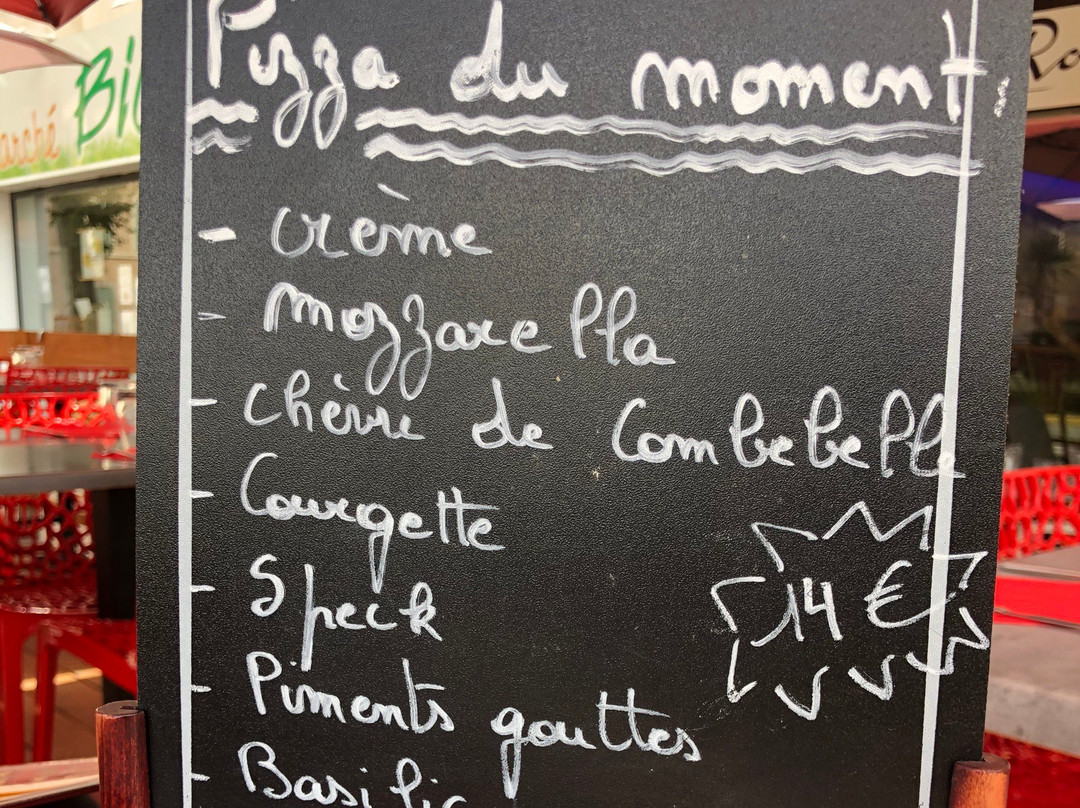 Pizza du moment :
- crème
- mozzarella
- chèvre de Combebelle
- Courgette
- Speck
- Piments gouttes
- Basilic
14 €
arché
Bio
Ro